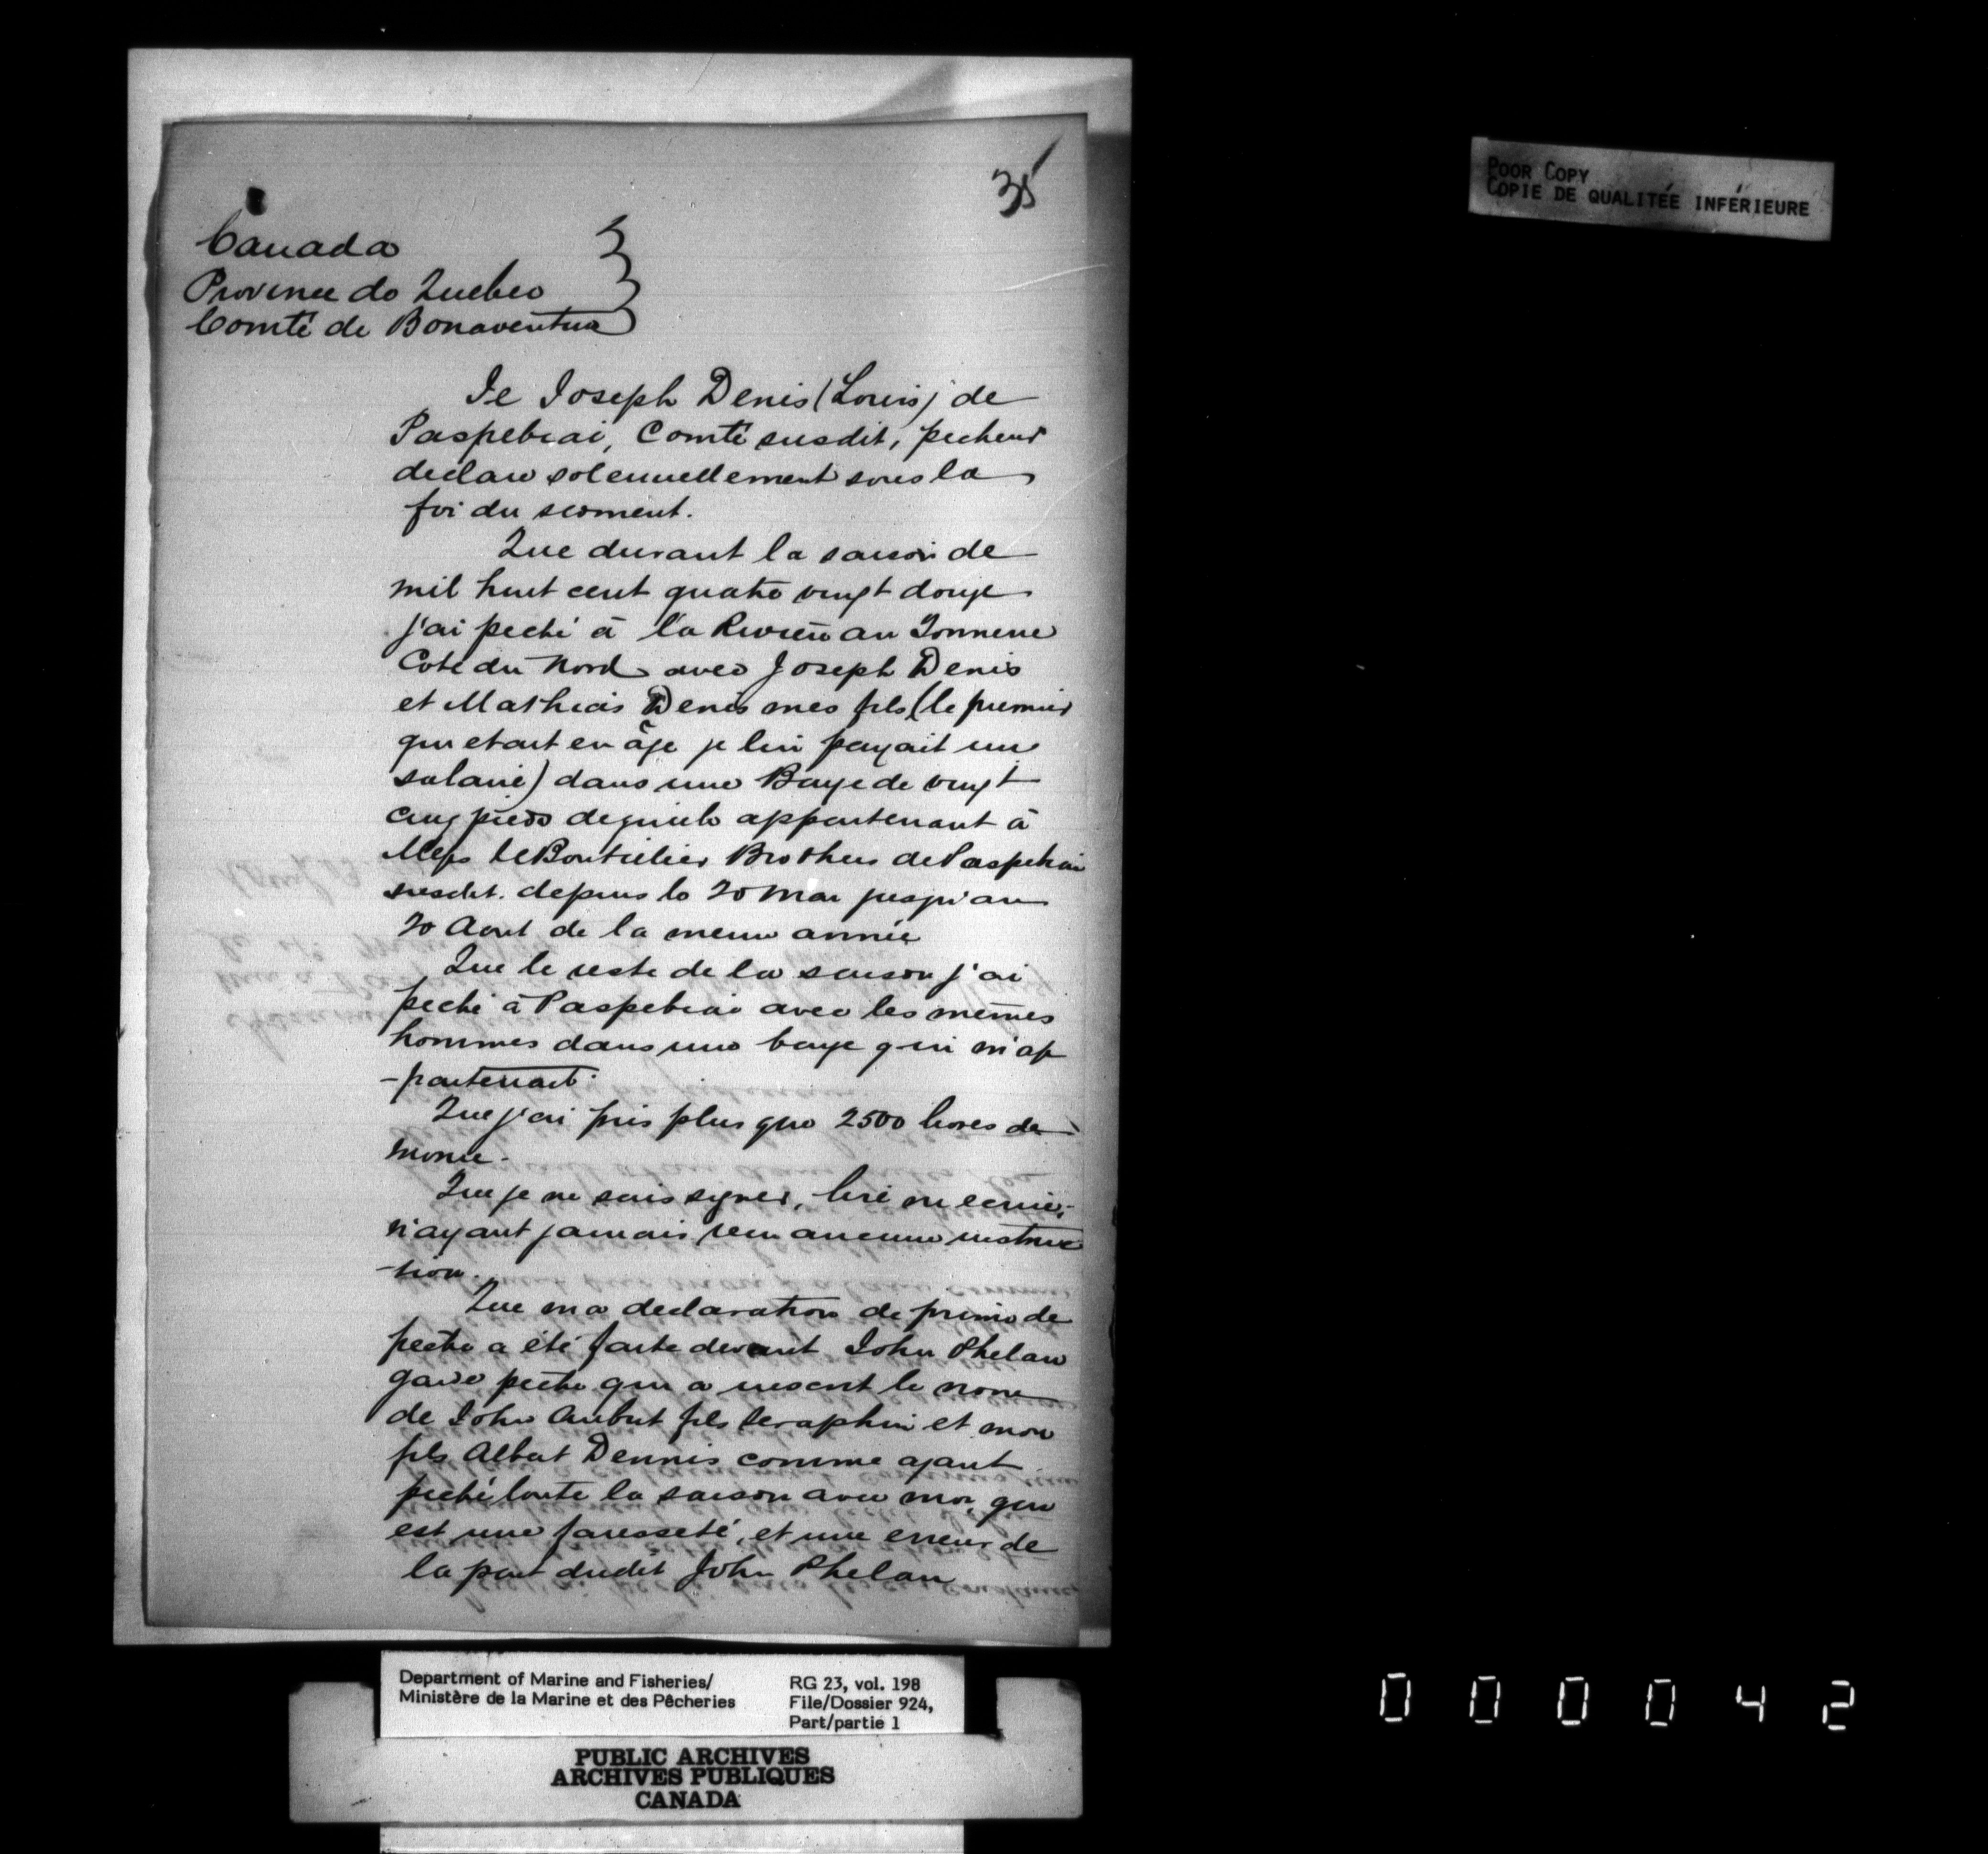 35
Canada
Province de Quebec
Comté de Bonaventure
Je Joseph Denis (Louis) de
Paspebiac, Comté susdit, pecheur
declare solennellement sous la
foi du serment.
Que durant la saison de
mil huit cent quatre vingt douze
j'ai peché à la Rivière au Tonnerre
Cote du Nord avec Joseph Denis
et Mathias Denis mes fils (le premier
qui etait en âge je lui payait un
salaire) dans une Barge de vingt
cinq pieds de quille appartenant à
Mess LeBoutillier Brothers de Paspebiac
susdit. depuis le 20 Mai jusqu'au
20 Aout de la meme année
Que le reste de la saison j'ai
peché à Paspebiac avec les mêmes
hommes dans une barge qui m'ap
-partenait.
Que j'ai pris plus que 2500 livres de
morue.
Que je ne sais signer, lire ni ecrire,
n'ayant jamais reçu aucune instruc
-tion.
Que ma declaration de prime de
peche a été faite devant John Phelan
garde peche qui a inscrit le nom
de John Aubut fils Seraphin et mon
fils Albert Dennis comme ayant
peché toute la saison avec moi, qui
est une fausseté, et une erreur de
la part dudit John Phelan
POOR COPY
COPIE DE QUALITÉE INFÉRIEURE
Department of Marine and Fisheries/
Ministère de la Marine et des Pêcheries
RG 23, vol. 198
File/Dossier 924,
Part/partie 1
PUBLIC ARCHIVES
ARCHIVES PUBLIQUES
CANADA
000042